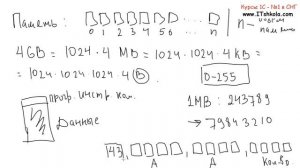 Курсы 1С - №1 в СНГ
www.ITshkola.com
Память:
0 1 2 3 4 5 6 ... n
n -
4GB = 1024 · 4 MB = 1024 · 1024 · 4 kB =
= 1024 · 1024 · 1024 · 4 B
0-255
1MB: 243789
Данные
→ 79843210
143
A A Кол-во